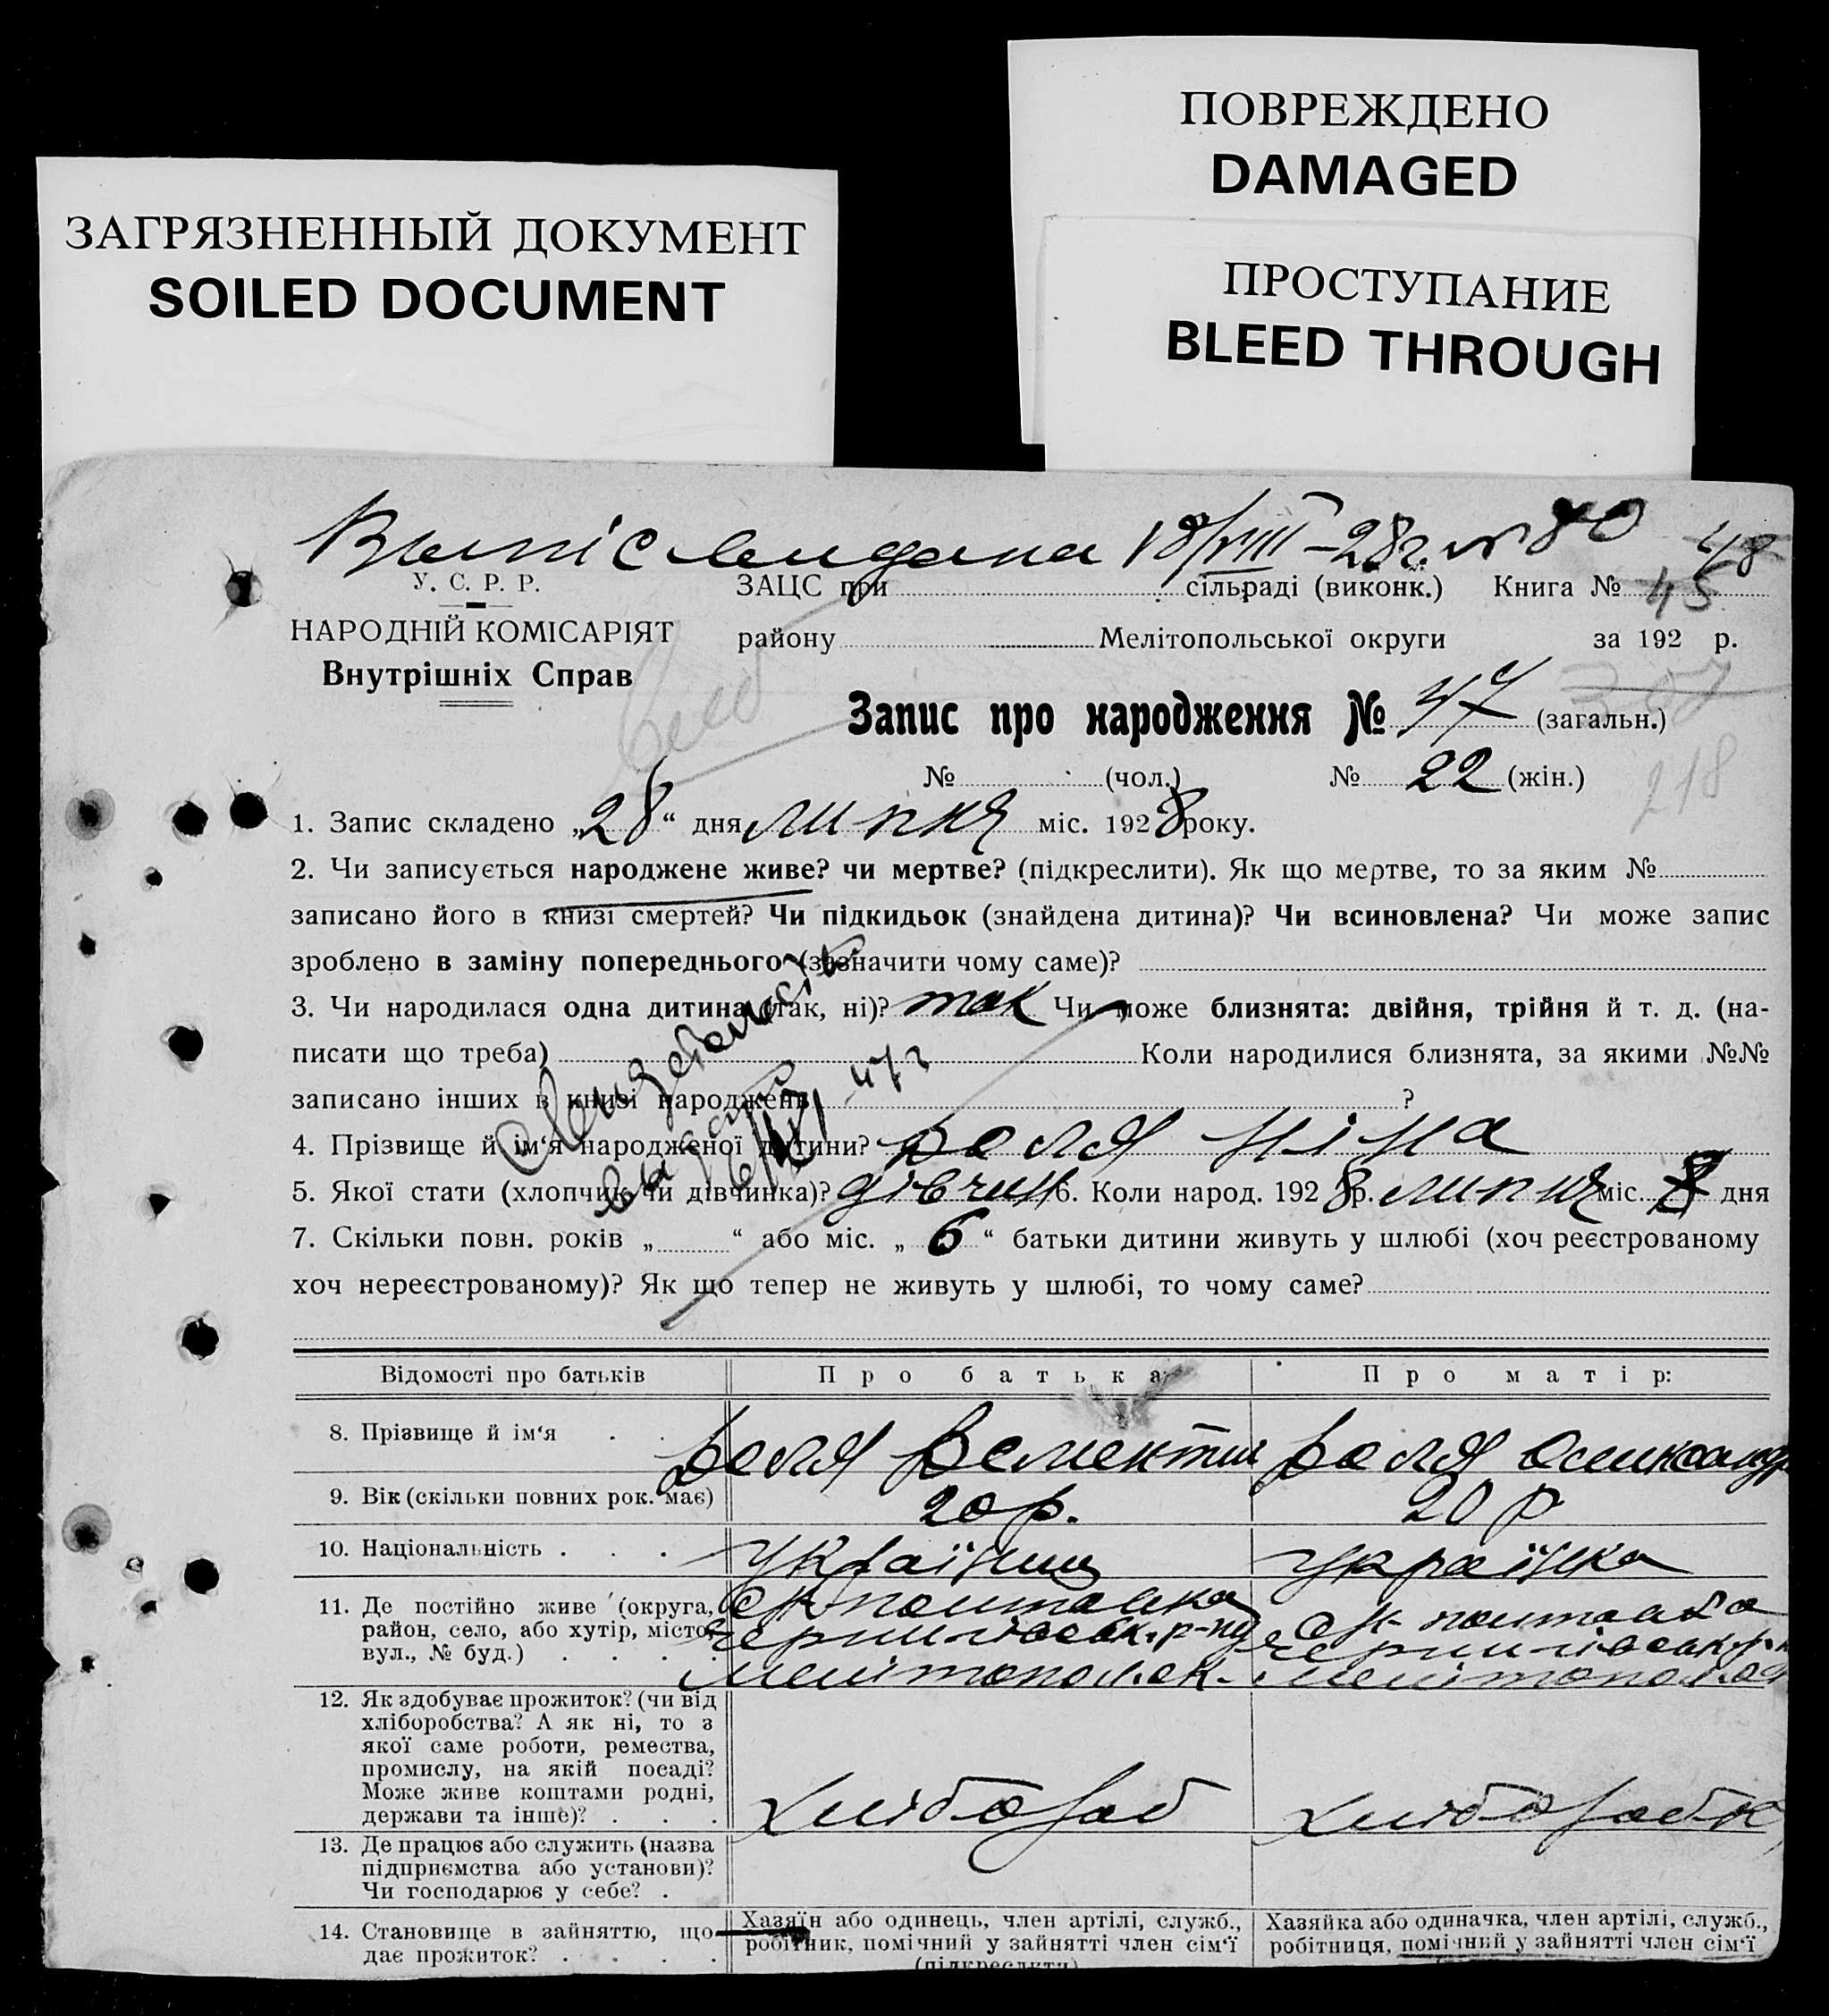 ПОВРЕЖДЕНО
DAMAGED
ЗАГРЯЗНЕННЫЙ ДОКУМЕНТ
SOILED DOCUMENT
ПРОСТУПАНИЕ
BLEED THROUGH
Випис видана 18/VIII–28г. № 80
48
У. С. Р. Р.
ЗАЦС при сільраді (виконк.) Книга № 45
НАРОДНІЙ КОМІСАРІЯТ
району Мелітопольської округи за 192 р.
Внутрішніх Справ
Запис про народження № 47 (загальн.)
№ (чол.) № 22 (жін.)
218
1. Запис складено „28“ дня липня міс. 1928 року.
2. Чи записується народжене живе? чи мертве? (підкреслити). Як що мертве, то за яким №
записано його в книзі смертей? Чи підкидьок (знайдена дитина)? Чи всиновлена? Чи може запис
зроблено в заміну попереднього (зазначити чому саме)?
3. Чи народилася одна дитина (так, ні)? так Чи може близнята: двійня, трійня й т. д. (на-
писати що треба) Коли народилися близнята, за якими №№
записано інших в книзі народжень ?
4. Прізвище й ім‘я народженої дитини? Роля Ніна
5. Якої стати (хлопчик чи дівчинка)? дівчин 6. Коли народ. 1928 р. липня міс. дня
7. Скільки повн. років „ “ або міс. „ 6 “ батьки дитини живуть у шлюбі (хоч реєстрованому
хоч нереєстрованому)? Як що тепер не живуть у шлюбі, то чому саме?
Відомості про батьків
Про батька:
Про матір:
8. Прізвище й ім‘я . .
Роля
Роля
9. Вік (скільки повних рок. має)
20 р.
20 р
10. Національність . . .
Українец
Українка
11. Де постійно живе (округа,
район, село, або хутір, місто,
вул., № буд.) . . . .
12. Як здобуває прожиток? (чи від
хліборобства? А як ні, то з
якої саме роботи, ремества,
промислу, на якій посаді?
Може живе коштами родні,
держави та інше)? . . .
Хлібороб
Хліборобка
13. Де працює або служить (назва
підприємства або установи)?
Чи господарює у себе? .
14. Становище в зайняттю, що
дає прожиток? . . . .
Хазяїн або одинець, член артілі, служб.,
робітник, помічний у зайнятті член сім‘ї
(підкреслити)
Хазяйка або одиначка, член артілі, служб.,
робітниця, помічний у зайнятті член сім‘ї